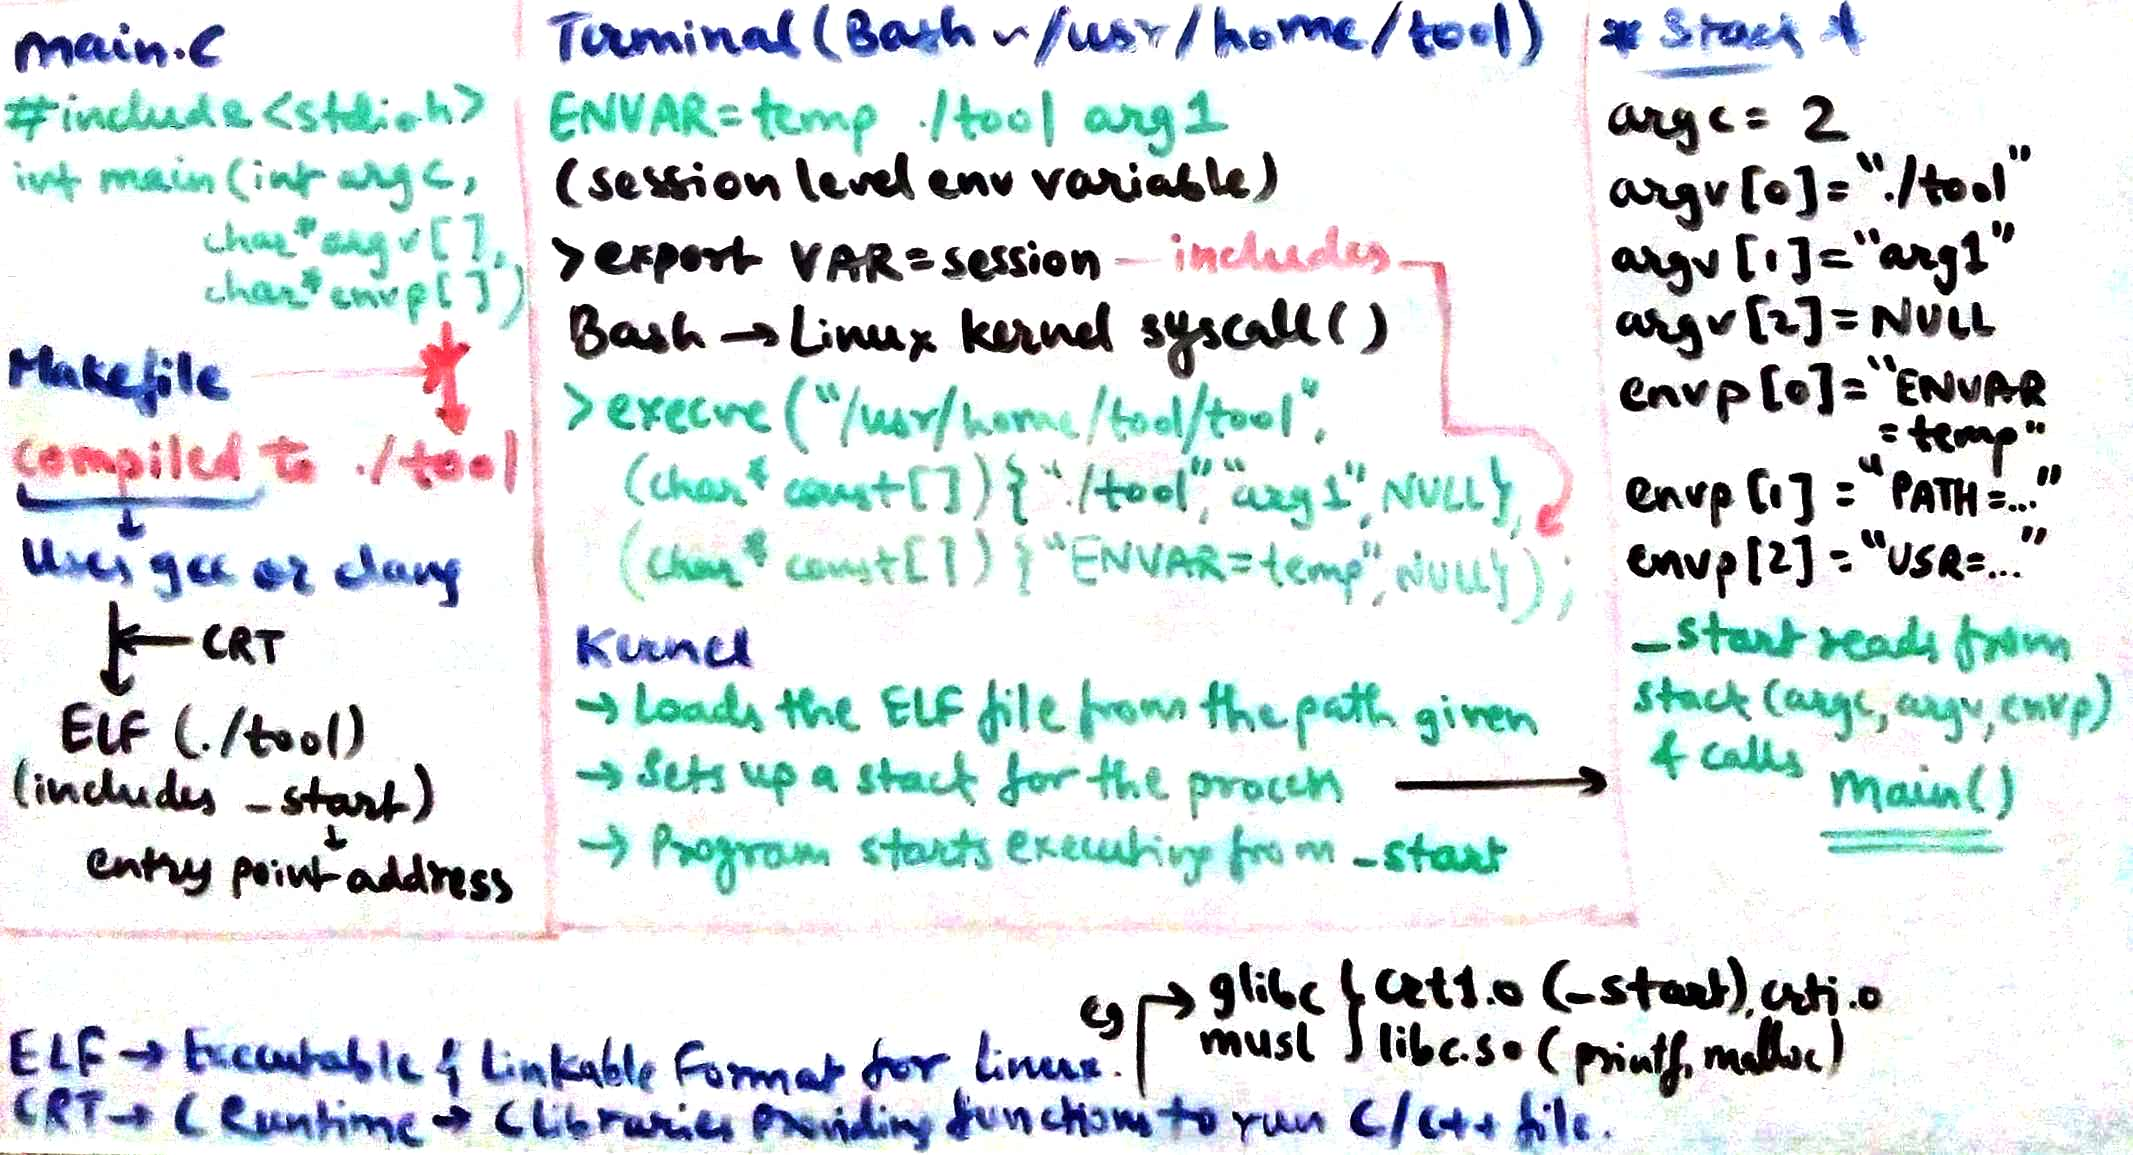 main.c
#include<stdio.h>
int main(int argc,
char*argv[],
char*envp[])
Makefile
compiled to ./tool
Uses gcc or clang
CRT
ELF (./tool)
(includes _start)
entry point address
Terminal (Bash ~/usr/home/tool)
ENVAR=temp ./tool arg1
(session level env variable)
>export VAR=session — includes
Bash → Linux kernel syscall()
>execve("/usr/home/tool/tool",
(char* const[]){"./tool","arg1",NULL},
(char* const[]){"ENVAR=temp",NULL});
Kernel
→ Loads the ELF file from the path given
→ Sets up a stack for the process
→ Program starts executing from _start
* Stack *
argc = 2
argv[0]="./tool"
argv[1]="arg1"
argv[2]=NULL
envp[0]="ENVAR
=temp"
envp[1]="PATH=..."
envp[2]="USR=..."
_start reads from
stack (argc, argv, envp)
& calls
main()
eg → glibc } crt1.o (_start), crti.o
musl } libc.so (printf, malloc)
ELF → Executable & Linkable Format for Linux.
CRT → C Runtime → C libraries providing functions to run C/C++ file.